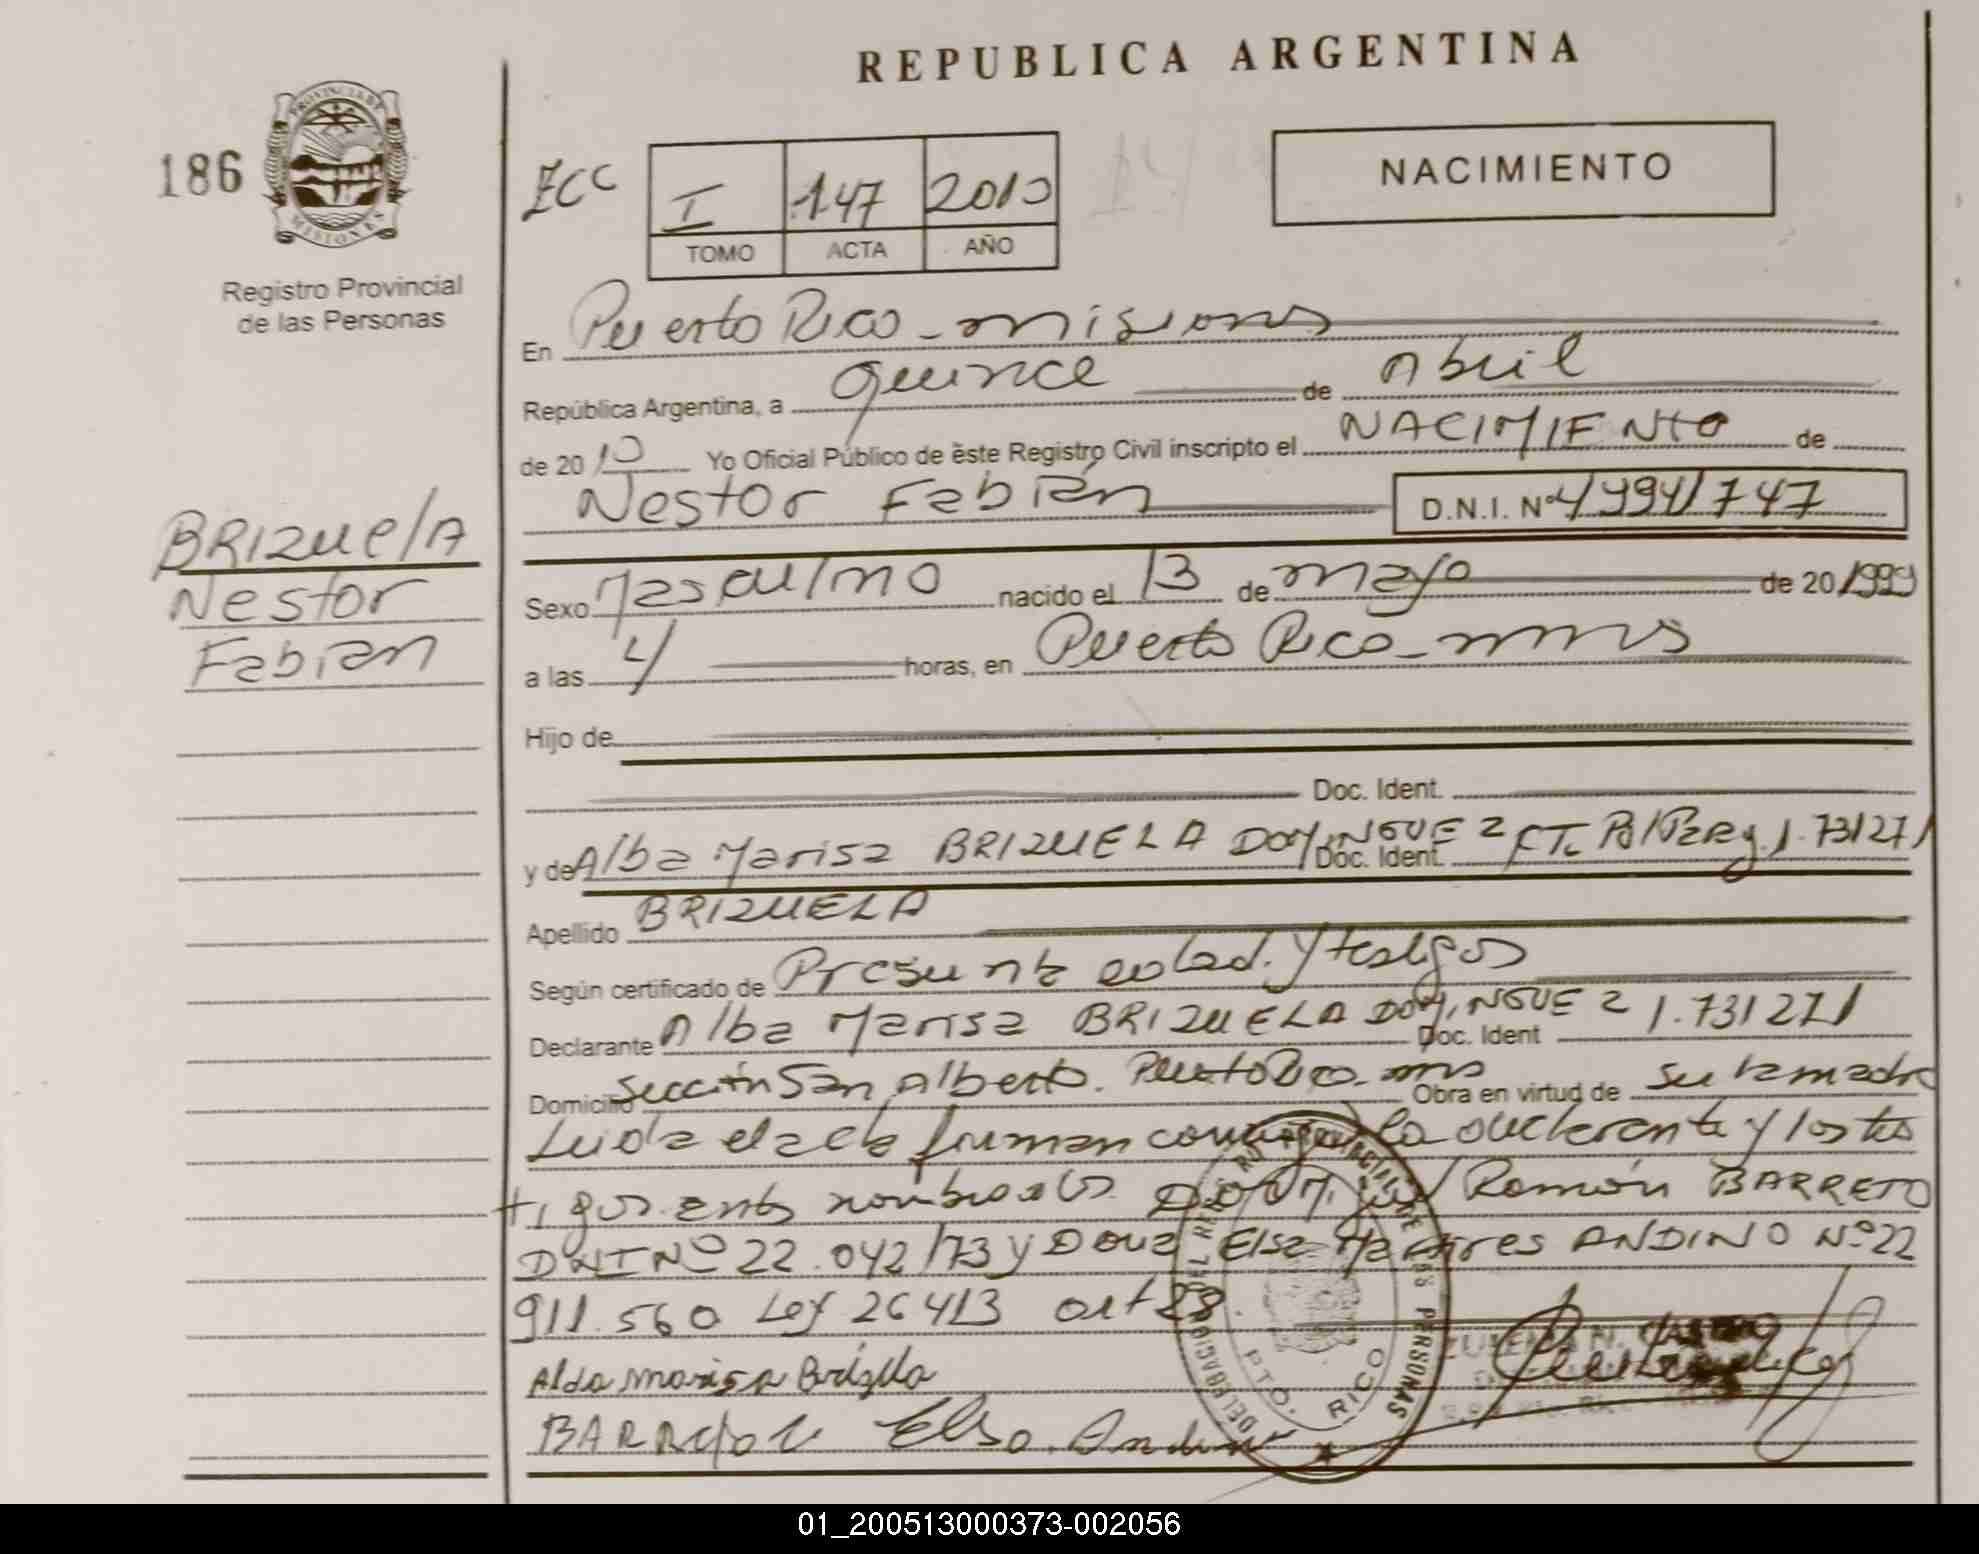 REPUBLICA ARGENTINA
186
PROVINCIA DE
MISIONES
Registro Provincial
de las Personas
I 147 2010
TOMO ACTA AÑO
NACIMIENTO
En Puerto Rico - misiones
República Argentina, a quince de Abril
de 2010 Yo Oficial Público de este Registro Civil inscripto el NACIMIENTO de
Nestor Fabián D.N.I. Nº
BRIZUELA
Nestor
Fabian
Sexo Masculino nacido el 13 de mayo de 20 1999
a las 4 horas, en Puerto Rico - mnes
Hijo de
Doc. Ident.
y de Alba Marisa BRIZUELA DOMINGUEZ Doc. Ident. 1.731271
Apellido BRIZUELA
Según certificado de Presunta edad. y testigos
Declarante Alba Marisa BRIZUELA DOMINGUEZ Doc. Ident 1.731271
Domicilio Sección San Alberto. Puerto Rico - mns Obra en virtud de Su la madre
Leida el acta firman conmigo la declarante y los tes
tigos nombrados Ramón BARRETO
DNI Nº 22.042173 y Doña Elsa ANDINO Nº 22
911.560 Ley 26413 art 28.
Alda Marisa Brizuela
Elsa. Andino
DEL REGISTRO PROVINCIAL DE LAS PERSONAS
PTO. RICO
01_200513000373-002056